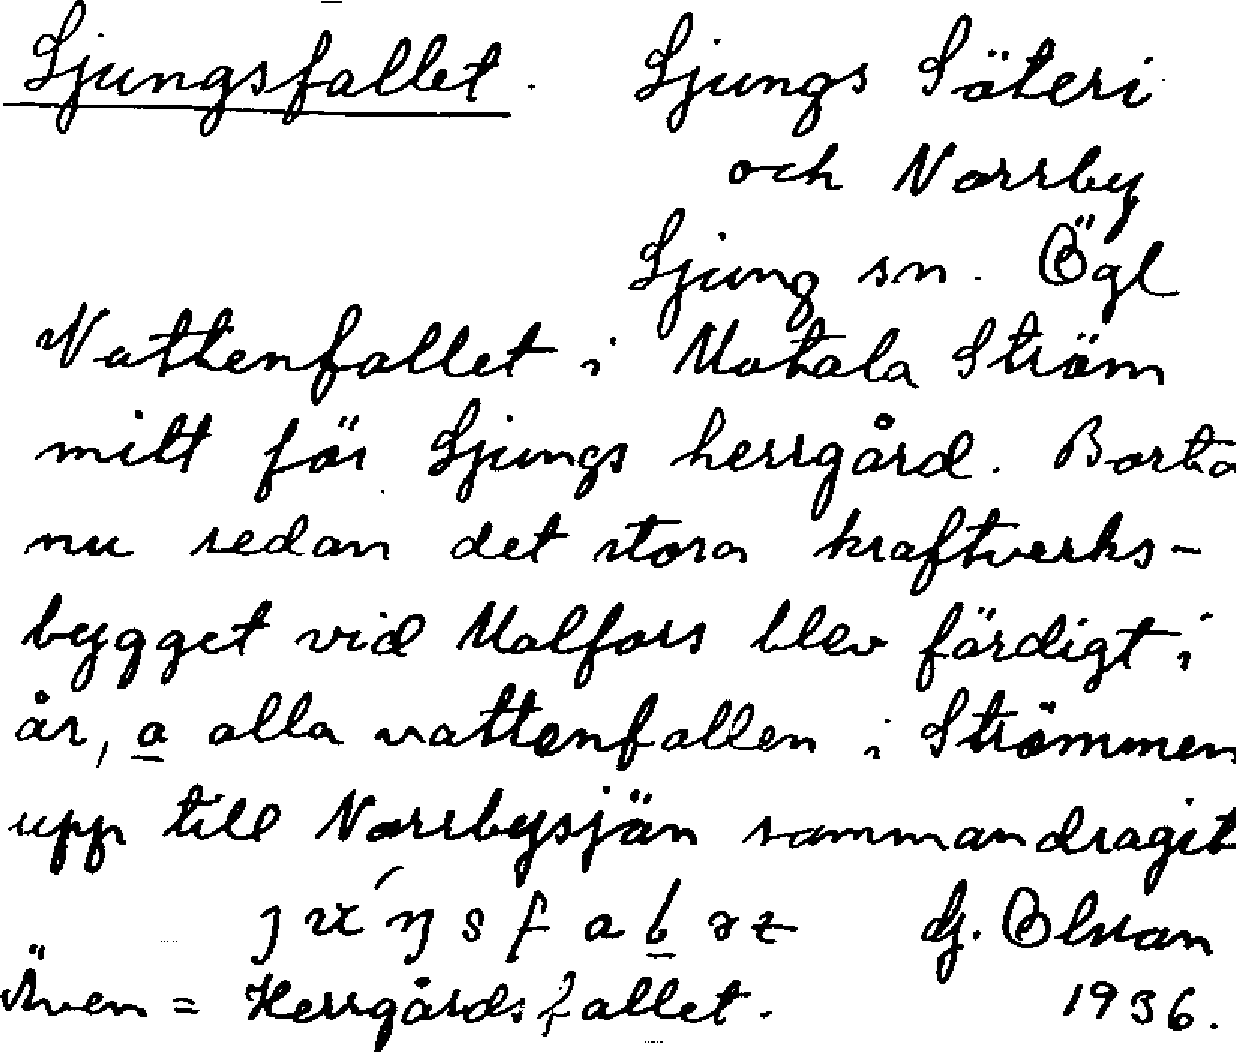 Ljungsfallet. Ljungs Säteri
och Norrby
Ljung sn. Ögl
Vattenfallet i Motala Ström
mitt för Ljungs herrgård. Borta
nu sedan det stora kraftverks-
bygget vid Malfors blev färdigt i
år, a alla vattenfallen i Strömmen
upp till Norrbysjön sammandragit
G. Olson
Även = Herrgårdsfallet. 1936.